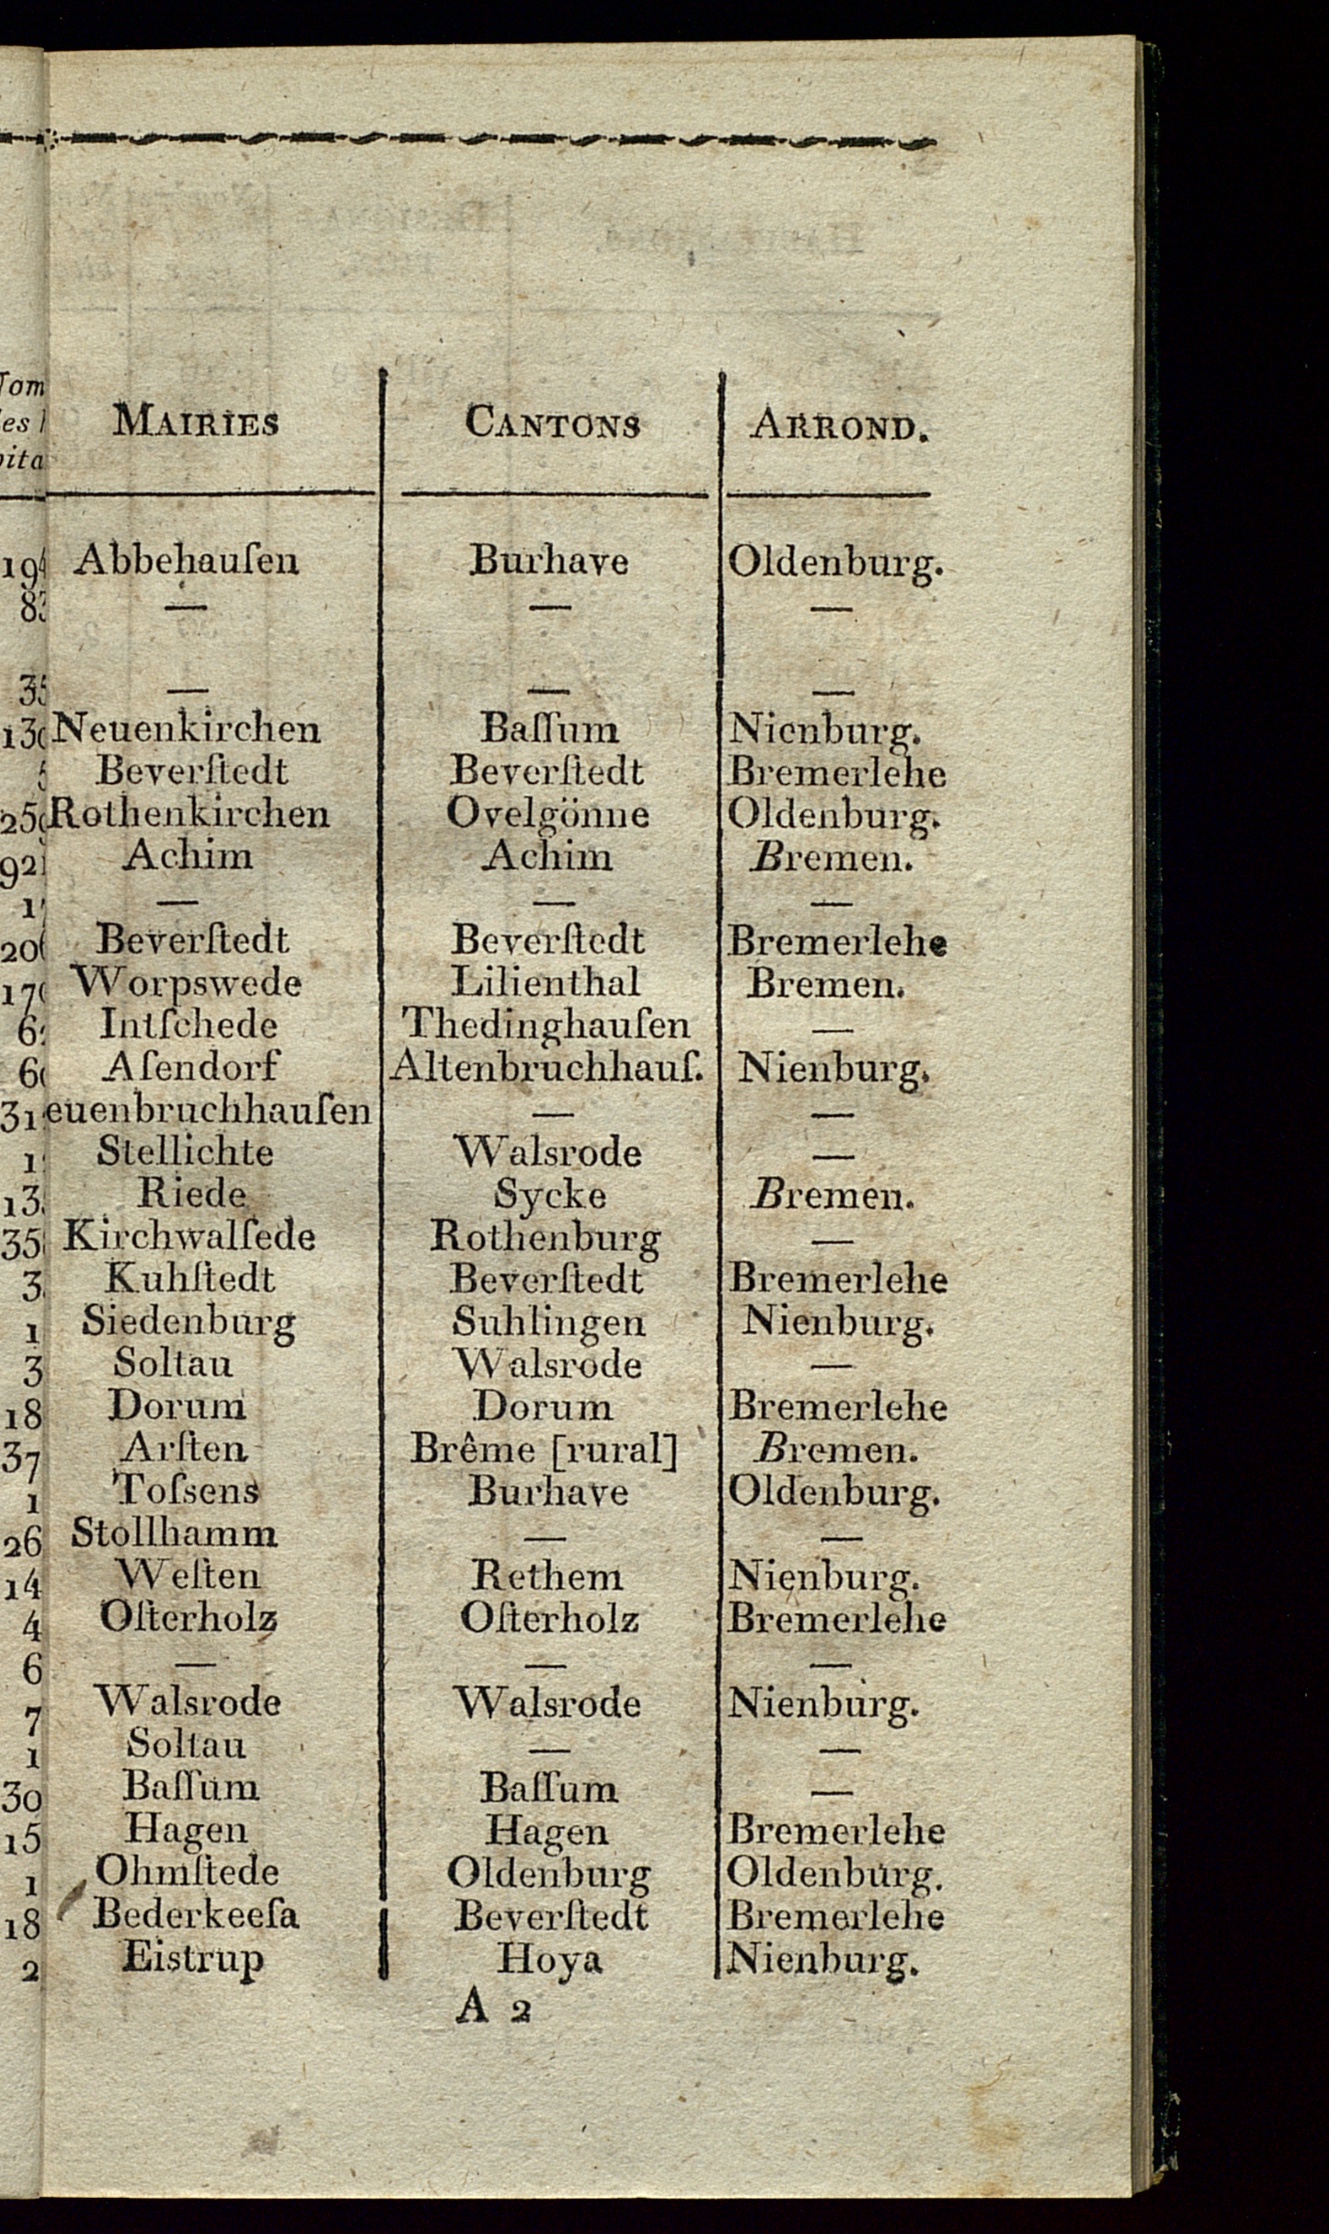 MAIRIES CANTONS ARROND.
Abbehauſen Burhave Oldenburg.
— — —
— — —
Neuenkirchen Baſſum Nienburg.
Beverſtedt Beverſtedt Bremerlehe
Rothenkirchen Ovelgönne Oldenburg.
Achim Achim Bremen.
— — —
Beverſtedt Beverſtedt Bremerlehe
Worpswede Lilienthal Bremen.
Intſchede Thedinghauſen —
Aſendorf Altenbruchhauſ. Nienburg.
euenbruchhauſen — —
Stellichte Walsrode —
Riede Sycke Bremen.
Kirchwalſede Rothenburg —
3 Kuhſtedt Beverſtedt Bremerlehe
1 Siedenburg Suhlingen Nienburg.
3 Soltau Walsrode —
18 Dorum Dorum Bremerlehe
37 Arſten Brême [rural] Bremen.
1 Toſsens Burhave Oldenburg.
26 Stollhamm — —
14 Weſten Rethem Nienburg.
4 Oſterholz Oſterholz Bremerlehe
6 — — —
7 Walsrode Walsrode Nienburg.
1 Soltau — —
30 Baſſum Baſſum —
15 Hagen Hagen Bremerlehe
1 Ohmſtede Oldenburg Oldenburg.
18 Bederkeeſa Beverſtedt Bremerlehe
2 Eistrup Hoya Nienburg.
A 2